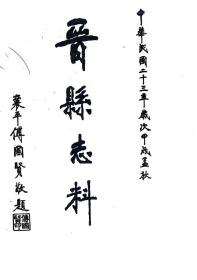 中華民國二十三年歲次甲戌孟秋
晉縣志料
襄平傅國賢敬題